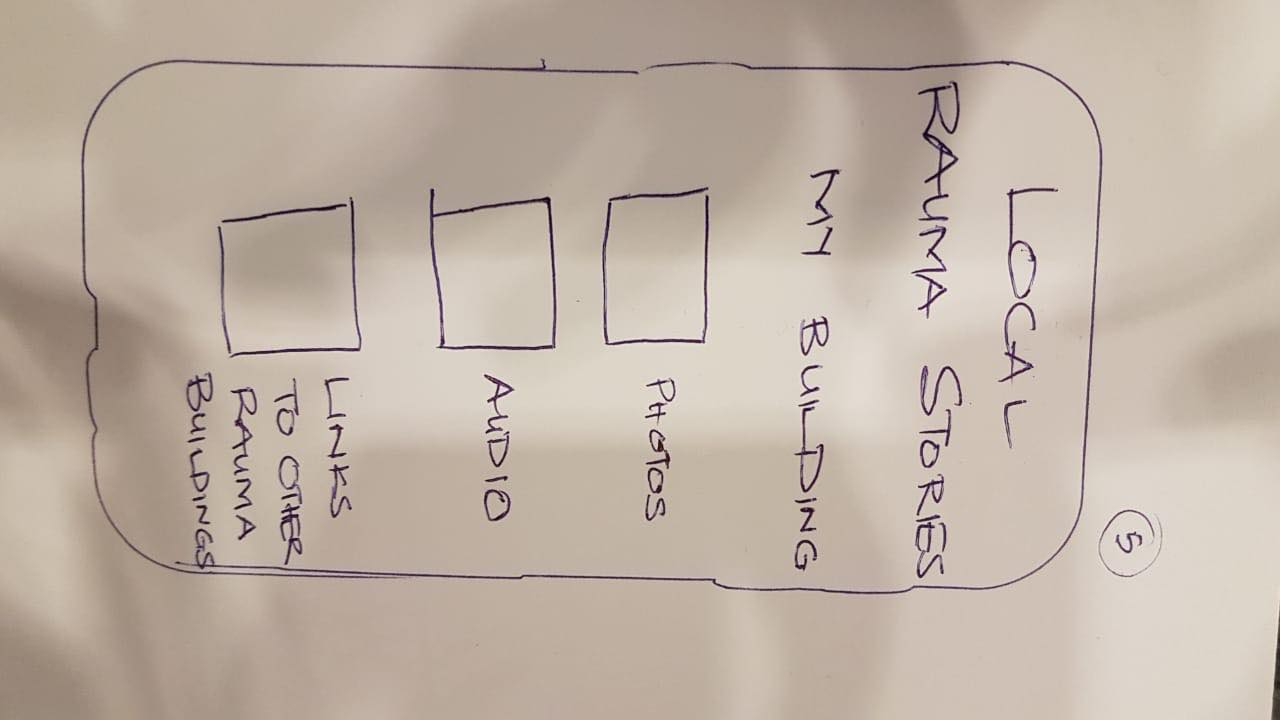 5
LOCAL
RAUMA STORIES
MY BUILDING
PHOTOS
AUDIO
LINKS
TO OTHER
RAUMA
BUILDINGS